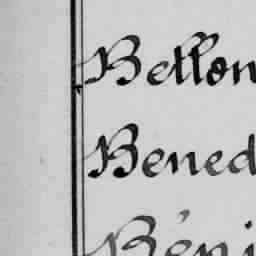 Bellon
Bened
Béni